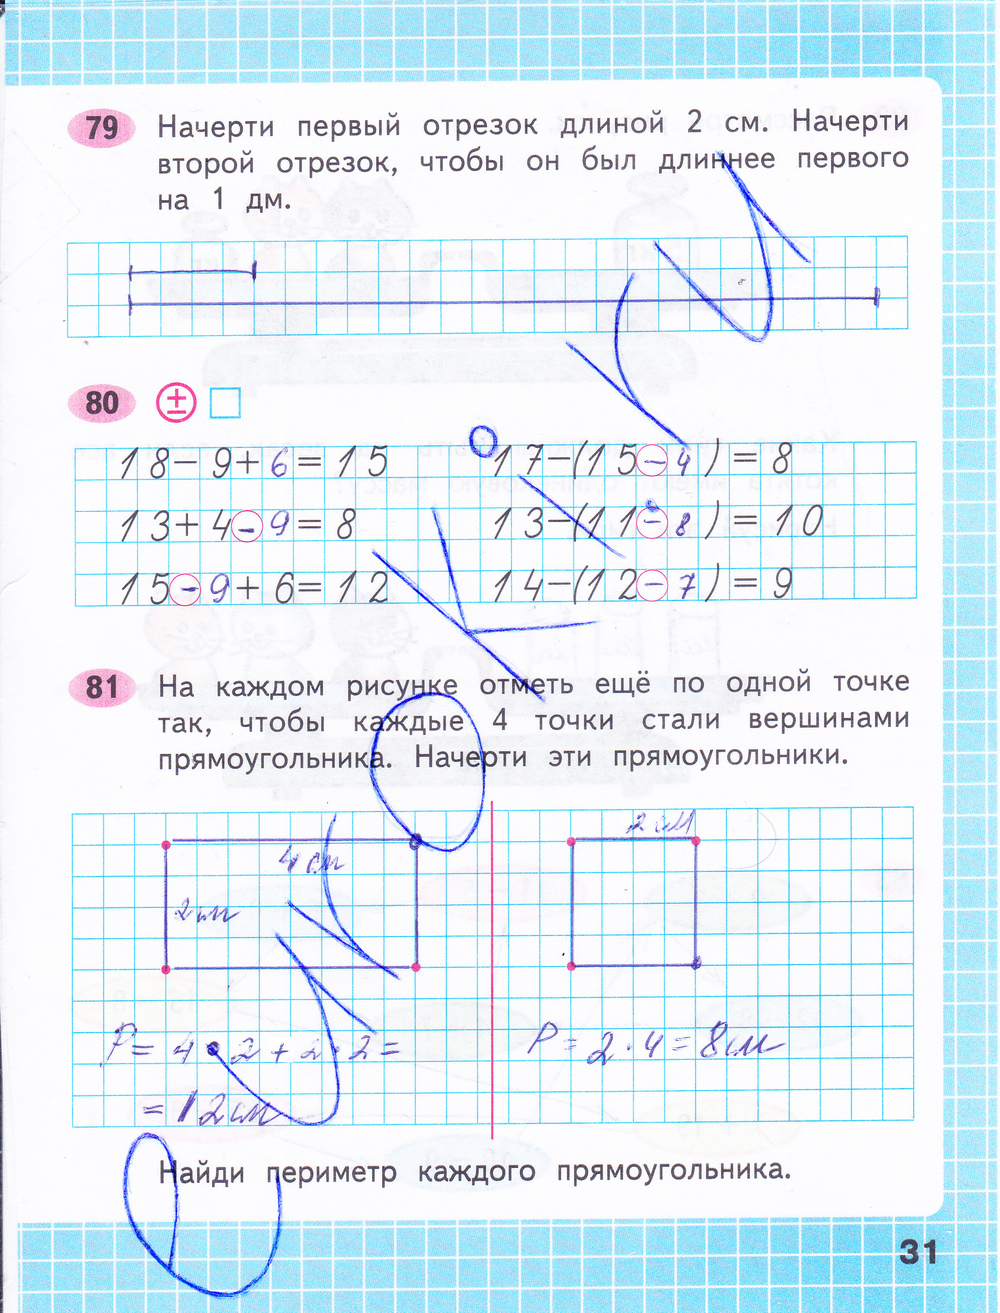 79 Начерти первый отрезок длиной 2 см. Начерти
второй отрезок, чтобы он был длиннее первого
на 1 дм.
80 ±
18-9+6=15 17-(15-4)=8
13+4-9=8 13-(11-8)=10
15-9+6=12 14-(12-7)=9
81 На каждом рисунке отметь ещё по одной точке
так, чтобы каждые 4 точки стали вершинами
прямоугольника. Начерти эти прямоугольники.
2 см
4 см
2 см
P = 4 · 2 + 2 · 2 = P = 2 · 4 = 8 см
= 12 см
Найди периметр каждого прямоугольника.
31